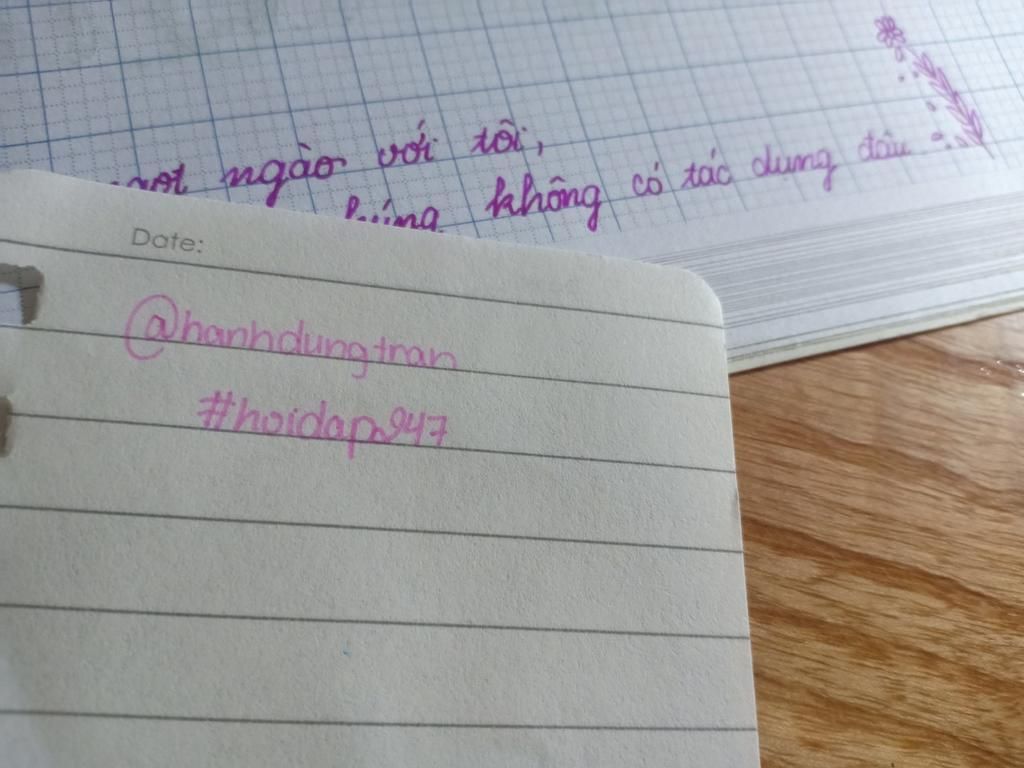 ngào với tôi,
không có tác dụng đâu
Date:
@hanhdungtran
#hoidap247